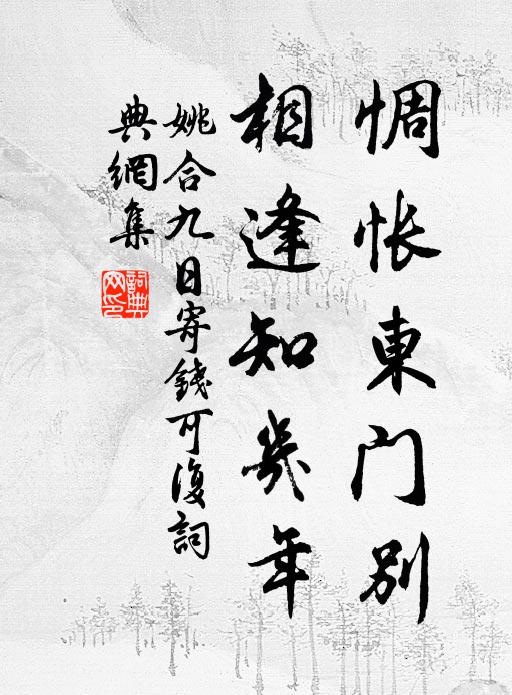 惆悵東門別
相逢知幾年
姚合九日寄錢可復詞
典網集
詞典網印